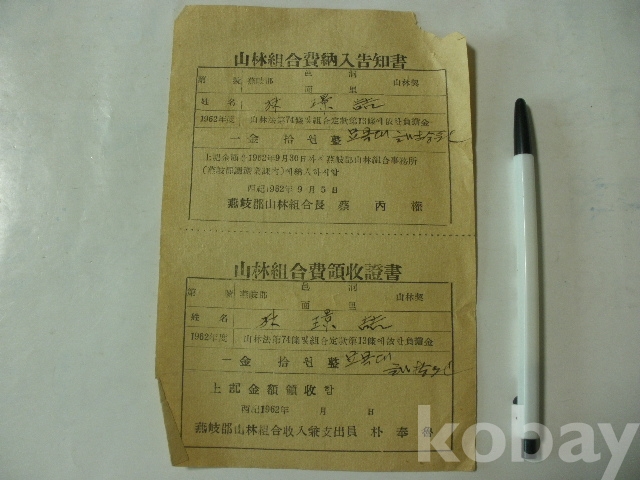 山林組合費納入告知書
邑 洞
第 號 燕岐郡 山林契
面 里
姓 名 林 璟
1962年度 山林法第74條및組合定款第13條에依한負擔金
一金 拾원整
上記金額을1962年9月30日까지燕岐郡山林組合事務所
에納入하시압
西紀1962年 9月 5日
燕岐郡山林組合長 蔡 丙
山林組合費領收證書
邑 洞
第 號 燕岐郡 山林契
面 里
姓 名 林 璟
1962年度 山林法第74條및組合定款第13條에依한負擔金
一金 拾원整
上記金額領收함
西紀1962年 月 日
燕岐郡山林組合收入兼支出員 朴 奉
kobay